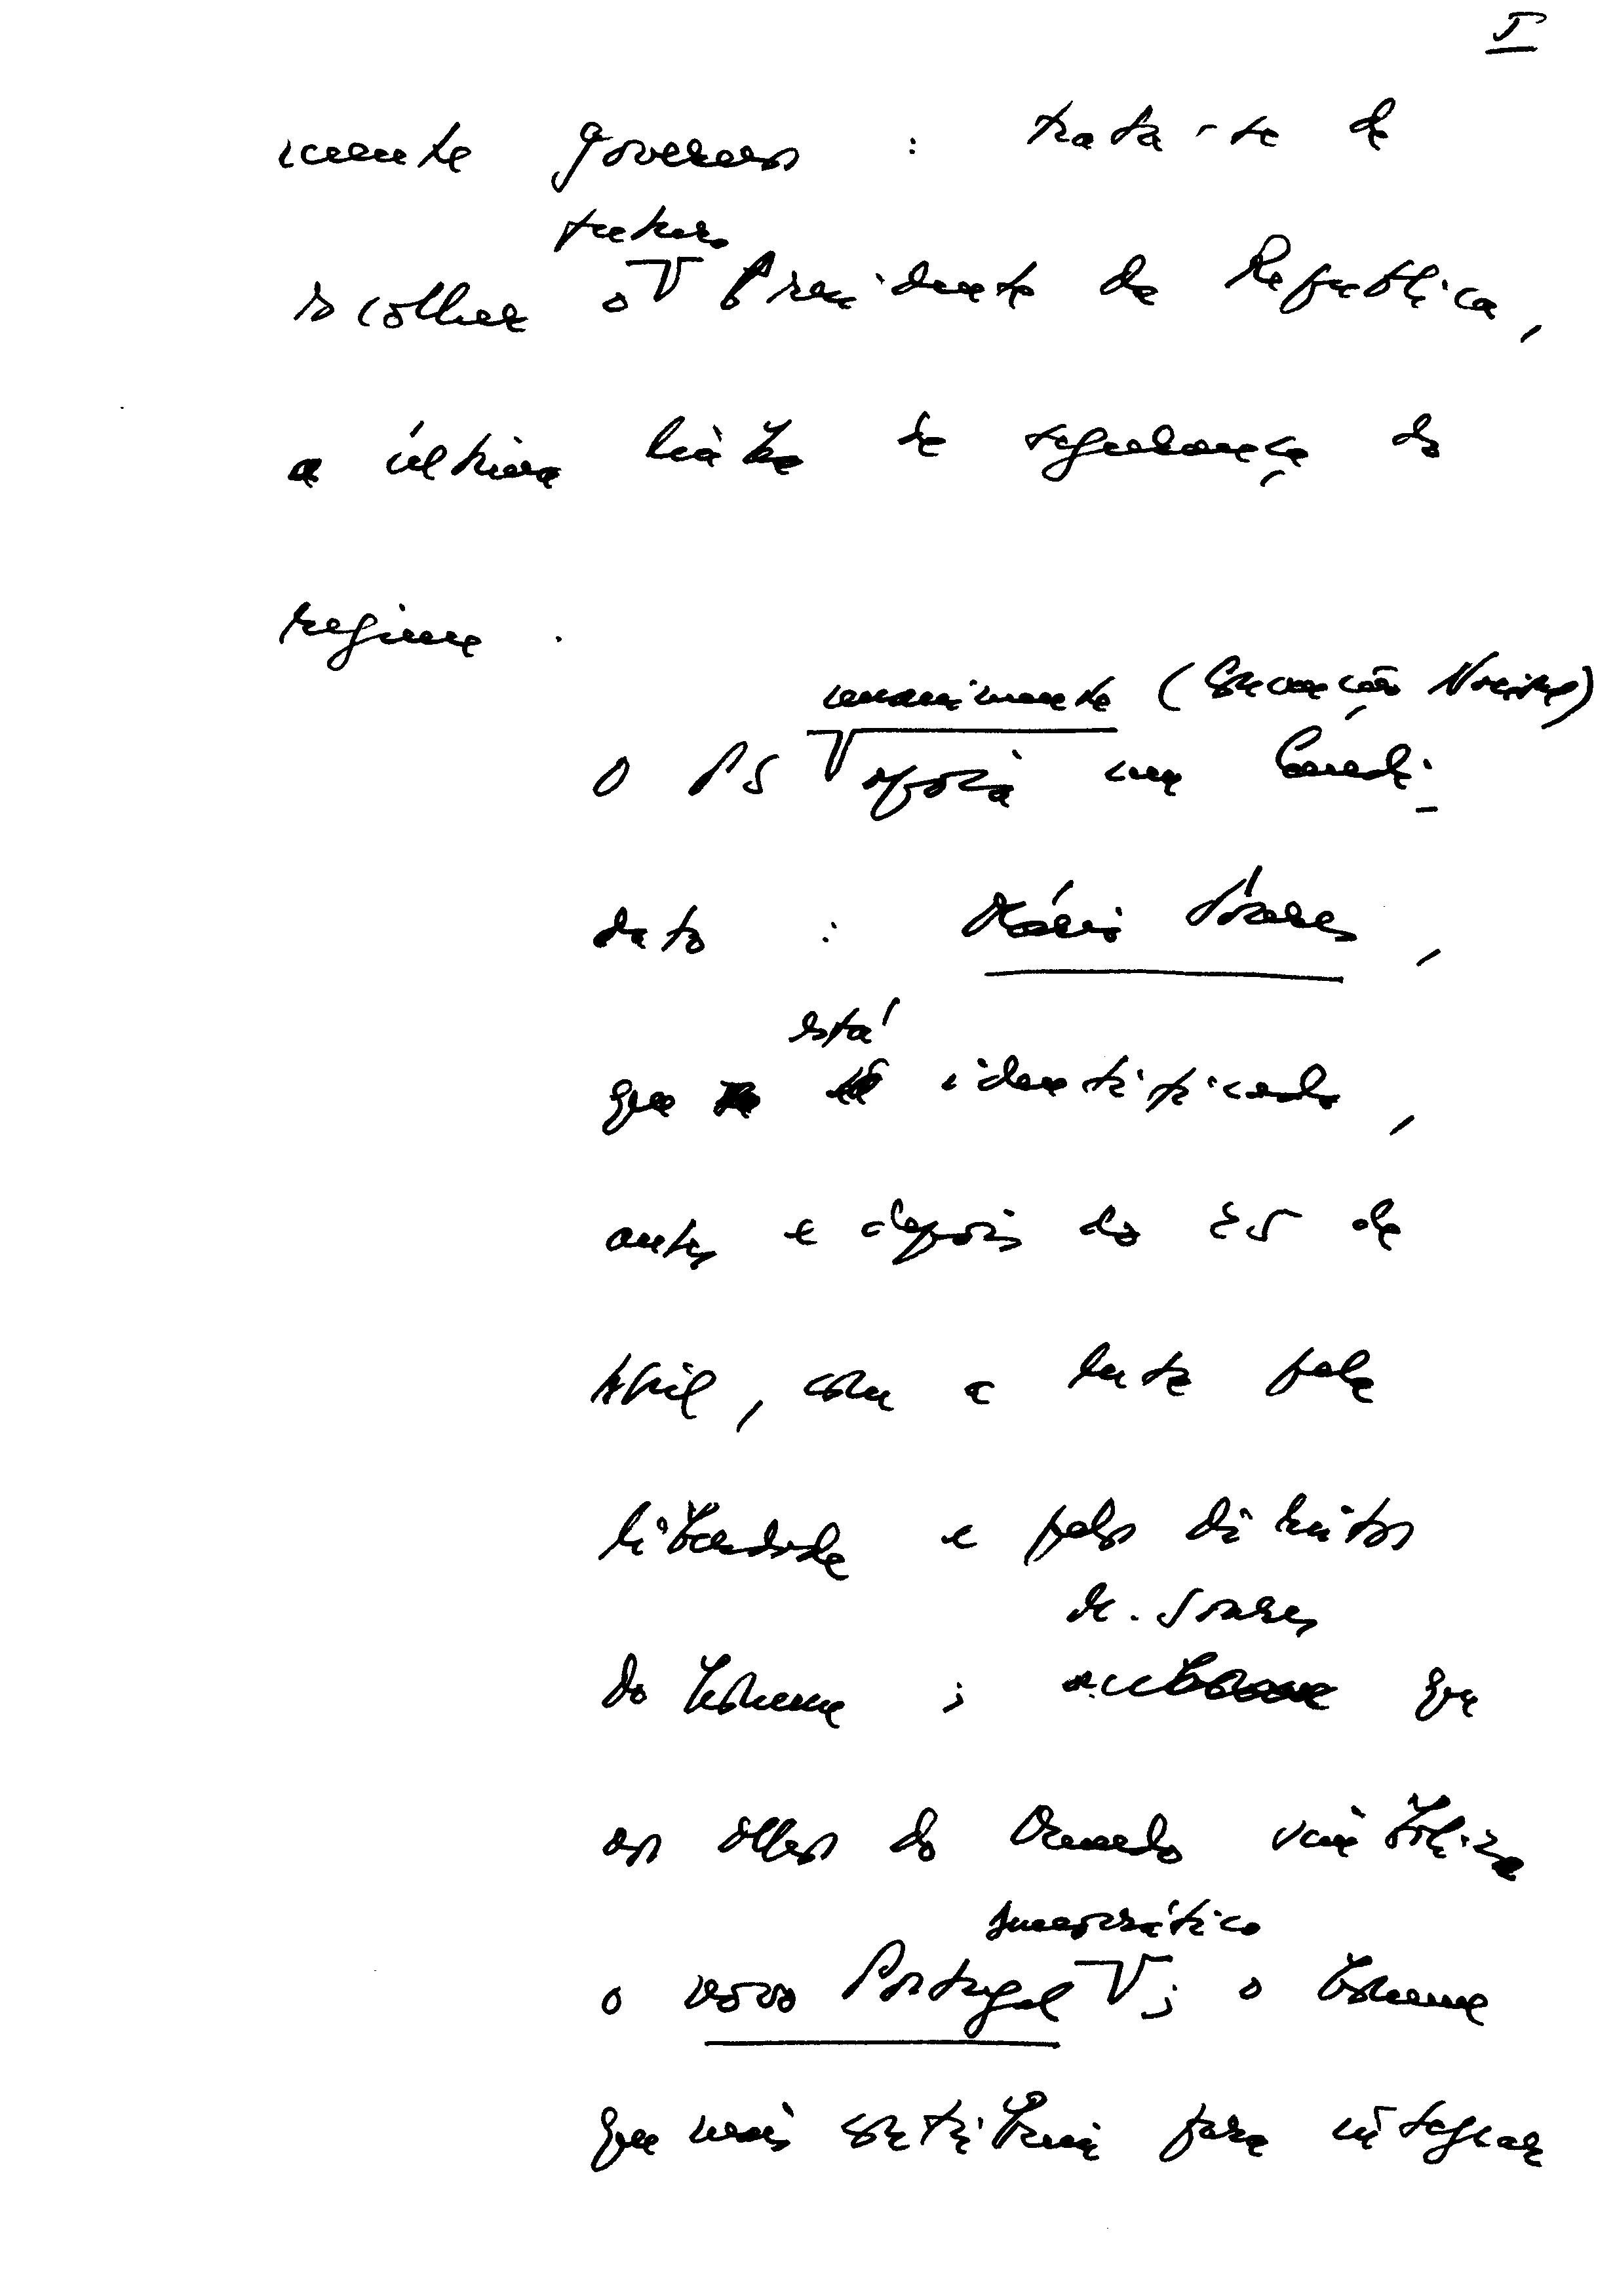 5
mente governos : trata-se de
futuro
escolher o Presidente da República,
a última linha de segurança do
regime.
unanimemente (
O PS apoia um Candi-
dato : Mário Soares,
está
que identificado,
antes e depois do 25 de
Abril, com a luta pela
liberdade e pelos direitos
do homem ; M. Soares que
aos olhos do Mundo simboliza
democrático
o novo Portugal ; o homem
que mais contribuiu para integrar